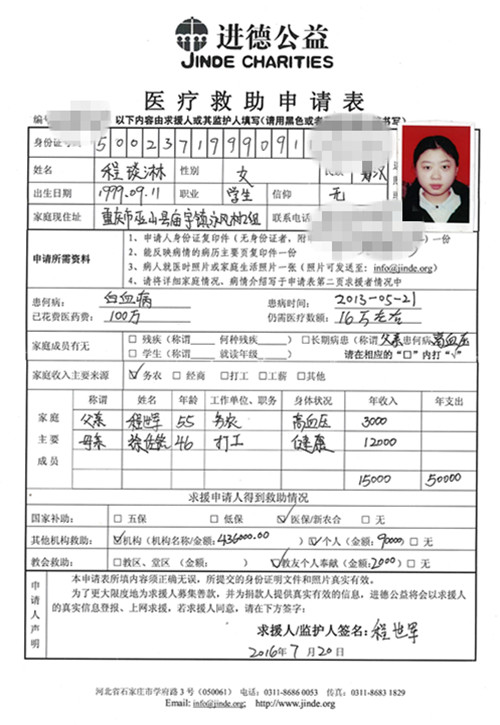 进德公益
JINDE CHARITIES
医疗救助申请表
编号 以下内容由求援人或其监护人填写(请用黑色或 书写)
身份证号 500237199909
姓名 程琰淋 性别 女
出生日期 1999.09.11 职业 学生 信仰 无
家庭现住址 重庆市巫山县庙宇镇永风村2组 联系电话
申请所需资料
1、申请人身份证复印件(无身份证者,附 )一份
2、能反映病情的病历主要页复印件一份
3、病人就医时照片或家庭生活照片一张(照片可发送至:info@jinde.org)
4、请将详细家庭情况、病情介绍写于申请表第二页求援者情况中
患何病: 白血病 患病时间: 2013-05-21
已花费医药费: 100万 仍需医疗数额: 16万左右
家庭成员有无 □残疾(称谓____何种残疾____) □长期病患(称谓父亲患何病高血压
□学生(称谓____就读年级____) 请在相应的“□”内打“√”
家庭收入主要来源 ☑务农 □经商 □打工 □工薪 □其他
家庭主要成员
称谓 姓名 年龄 工作单位、职务 身体状况 年收入 年支出
父亲 程世军 55 务农 高血压 3000
母亲 46 打工 健康 12000
15000 50000
求援申请人得到救助情况
国家补助: □五保 □低保 ☑医保/新农合 □无
其他机构救助: ☑机构(机构名称/金额:436000.00) ☑个人(金额:90000) □无
教会救助: □教区、堂区(金额: ) ☑教友个人奉献(金额:2000) □无
申请人声明
本申请表所填内容须正确无误,所提交的身份证明文件和照片真实有效。
为了更大限度地为求援人募集善款,并为捐款人提供真实有效的信息,进德公益将会以求援人
的真实信息登报、上网求援,若求援人同意,请在下方签字:
求援人/监护人签名: 程世军
2016年7月20日
河北省石家庄市学府路3号(050061) 电话:0311-8686 0053 传真:0311-8683 1829
Email: info@jinde.org; http://www.jinde.org